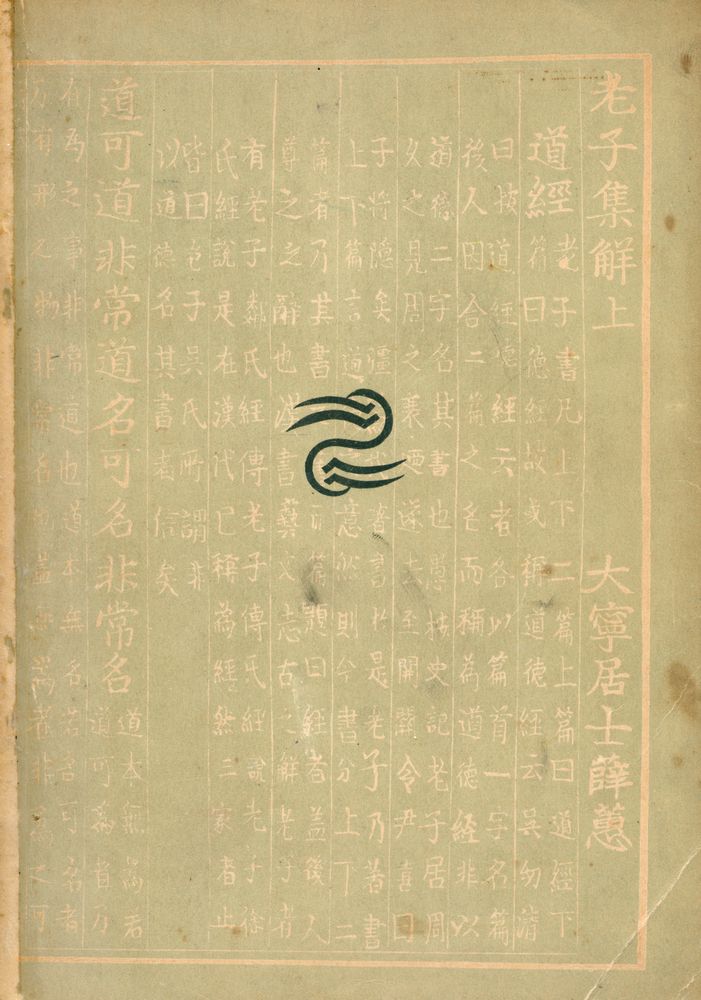 老子集解上 大寧居士薛蕙
道經 老子書凡上下二篇上篇曰道經下
篇曰德經故或稱道德經云吳幼清
曰按道經德經云者各以篇首一字名篇
後人因合二篇之名而稱為道德經非以
道德二字名其書也愚按史記老子居周
久之見周之衰迺遂去至關關令尹喜曰
子將隱矣彊著書於是老子乃著書
上下篇言道意然則今書分上下二
篇者乃其書篇題曰經者蓋後人
尊之之辭也漢書藝文志古之解老子者
有老子鄰氏經傳老子傅氏經說老子徐
氏經說是在漢代已稱為經然二家者止
皆曰老子吳氏所謂非
以道德名其書者信矣
道可道非常道名可名非常名 道本無為若
道可為者乃
有為之事非常道也道本無名若名可名者
乃有形之物非無名也蓋無為者非為之可